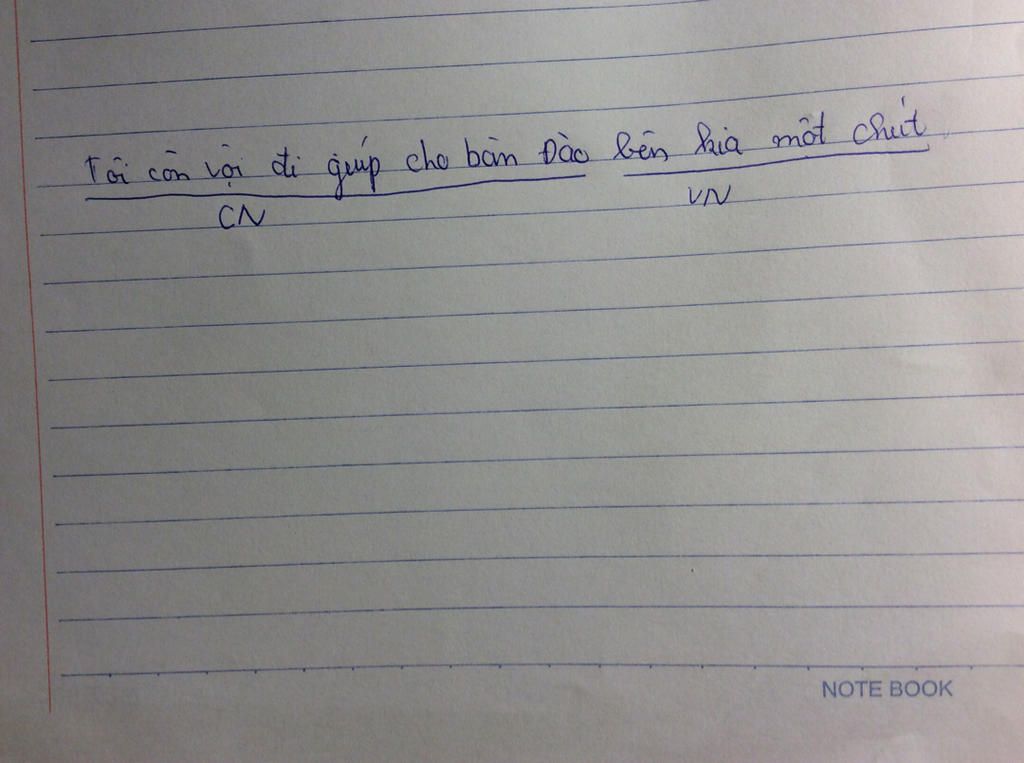 Tôi còn vội đi giúp cho bàn Đào bên kia một chút
CN VN
NOTE BOOK